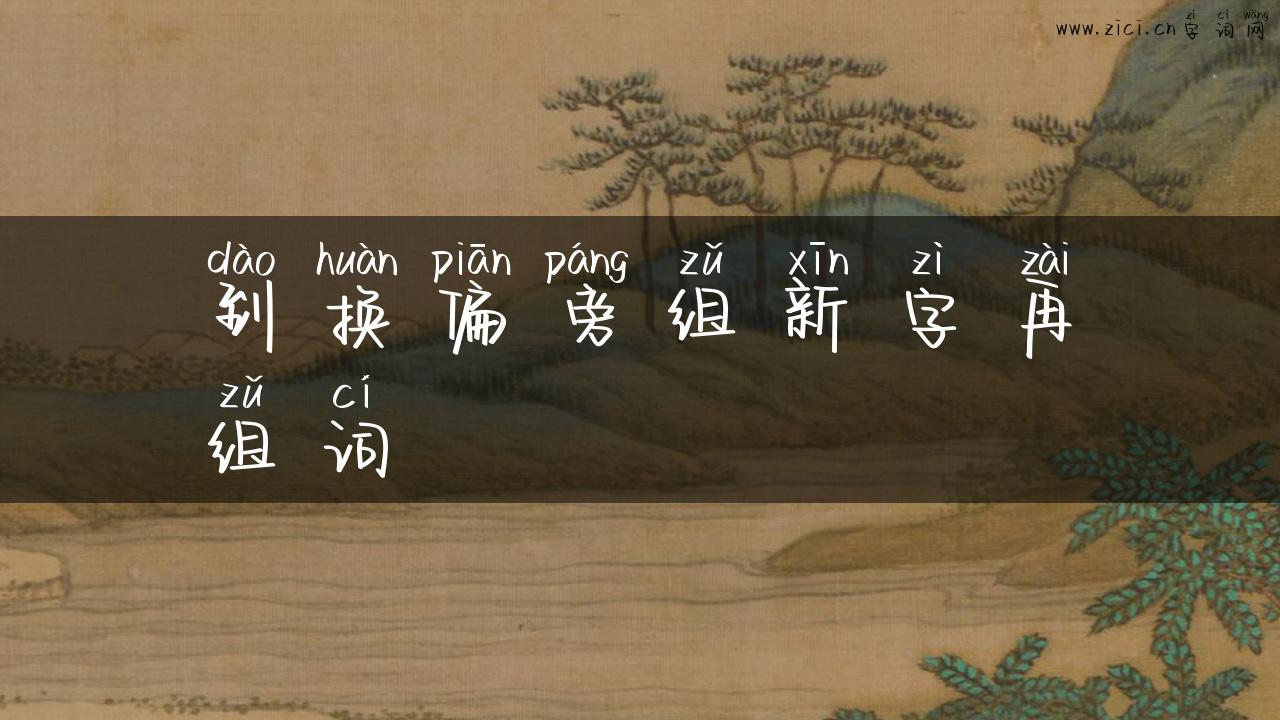 www.zici.cn zì cí wǎng
字词网
dào huàn piān páng zǔ xīn zì zài
到换偏旁组新字再
zǔ cí
组词